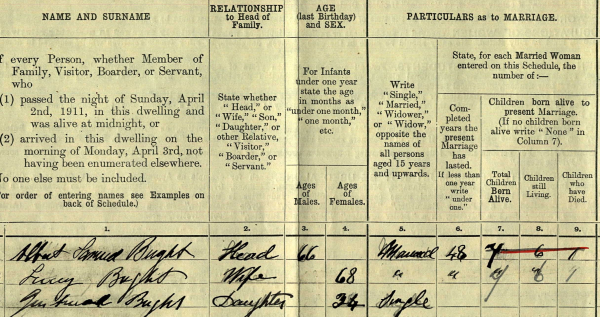 NAME AND SURNAME
RELATIONSHIP
to Head of
Family.
AGE
(last Birthday)
and SEX.
PARTICULARS as to MARRIAGE.
f every Person, whether Member of
Family, Visitor, Boarder, or Servant,
who
(1) passed the night of Sunday, April
2nd, 1911, in this dwelling and
was alive at midnight, or
(2) arrived in this dwelling on the
morning of Monday, April 3rd, not
having been enumerated elsewhere.
No one else must be included.
For order of entering names see Examples on
back of Schedule.)
State whether
"Head," or
"Wife," "Son,"
"Daughter," or
other Relative,
"Visitor,"
"Boarder," or
"Servant."
For Infants
under one year
state the age
in months as
"under one
month,"
"one month,"
etc.
Ages
of
Males.
Ages
of
Females.
Write
"Single,"
"Married,"
"Widower,"
or "Widow,"
opposite the
names of
all persons
aged 15 years
and upwards.
State, for each Married Woman
entered on this Schedule, the
number of:—
Com-
pleted
years the
present
Marriage
has
lasted.
If less than
one year
write
"under
one."
Children born alive to
present Marriage.
(If no children born
alive write "None" in
Column 7).
Total
Children
Born
Alive.
Children
still
Living.
Children
who
have
Died.
1. 2. 3. 4. 5. 6. 7. 8. 9.
Albert Samuel Bught Head 66 Married 48 7 6 1
Lucy Bught Wife 68 " " 7 1
Gertrude Bught Daughter Single